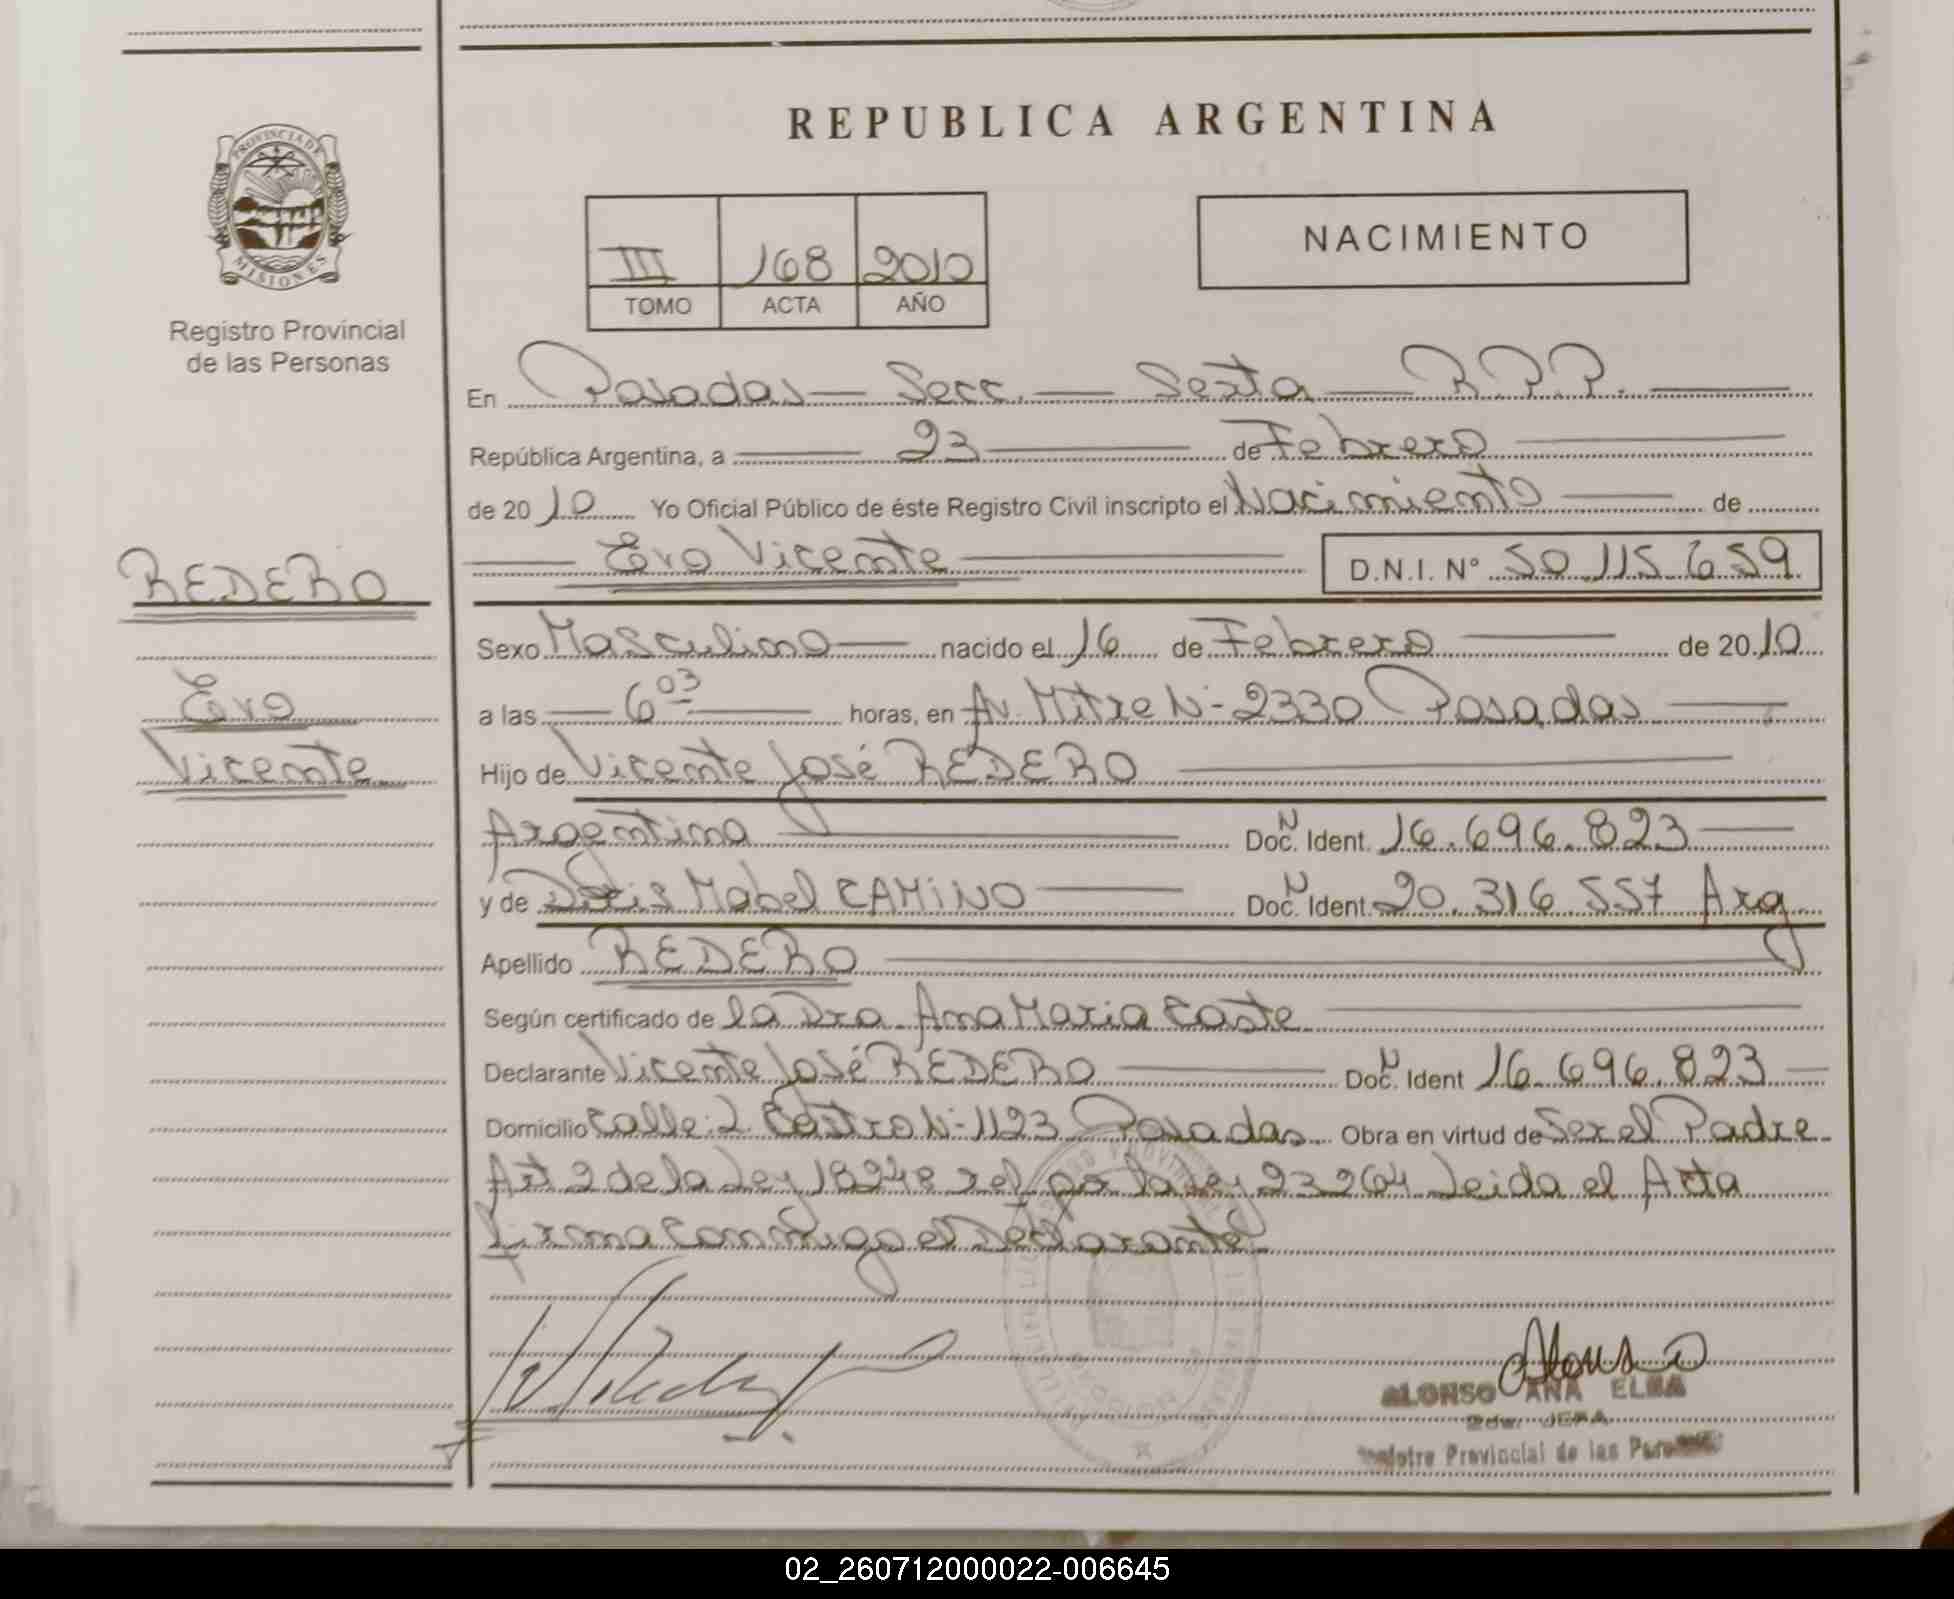 REPUBLICA ARGENTINA
PROVINCIA DE
MISIONES
Registro Provincial
de las Personas
III 168 2010
TOMO ACTA AÑO
NACIMIENTO
En Posadas — Secc. — Sexta — R.P.P.
República Argentina, a 23 de Febrero
de 2010 Yo Oficial Público de éste Registro Civil inscripto el Nacimiento de
Vicente D.N.I. N° 50.115.659
REDERO
Sexo Masculino nacido el 16 de Febrero de 2010
a las 6 03 horas, en Av. Mitre N- 2330 Posadas
Vicente
Hijo de Vicente José REDERO
Argentina Doc. N Ident. 16.696.823
y de Mabel CAMINO Doc. N Ident. 20.316.557 Arg
Apellido REDERO
Según certificado de la Dra. Ana Maria
Declarante Vicente José REDERO Doc. N Ident 16.696.823
Domicilio Calle: L. Castro N- 1123 Posadas. Obra en virtud de Ser el Padre
Art 2 de la Ley 18248 ref por la Ley 23264 Leida el Acta
firma conmigo el Declarante
ALONSO ANA ELBA
2da. JEFA
Registro Provincial de las Personas
02_260712000022-006645